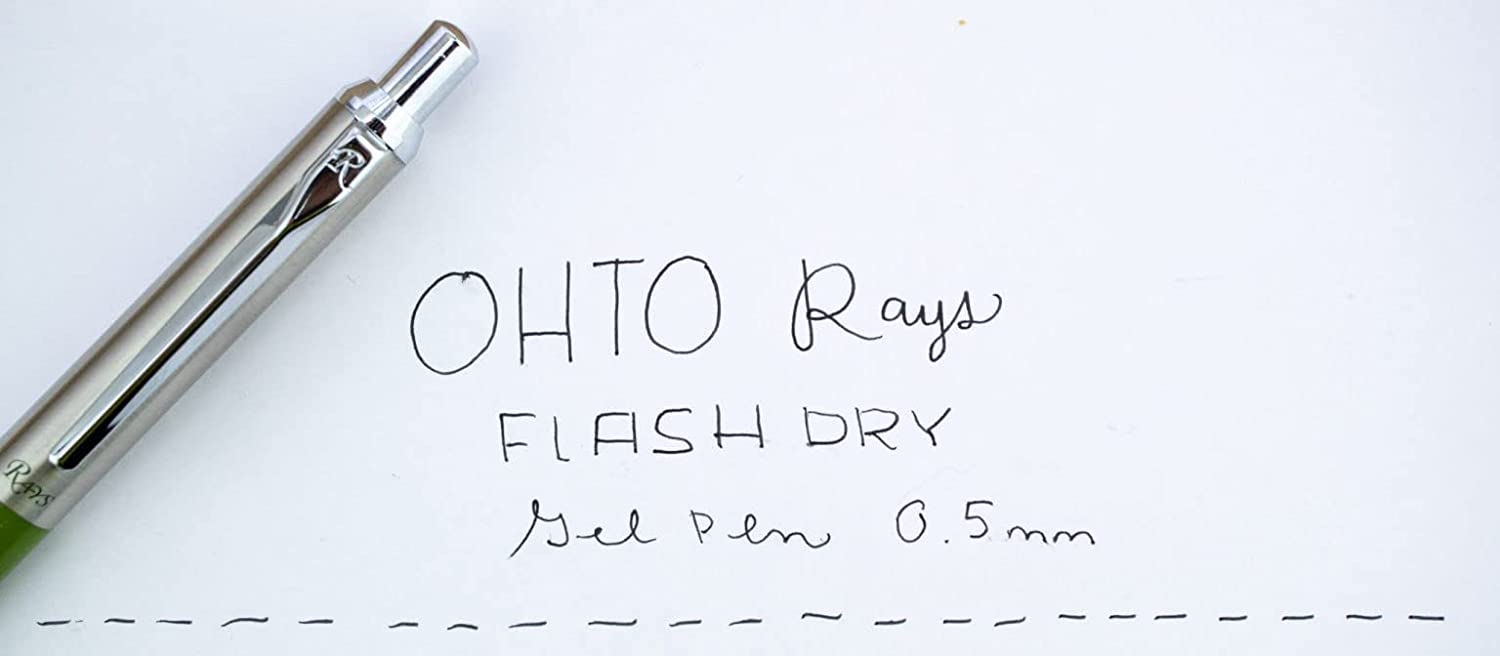 R
Rays
OHTO Rays
FLASH DRY
Gel Pen 0.5mm